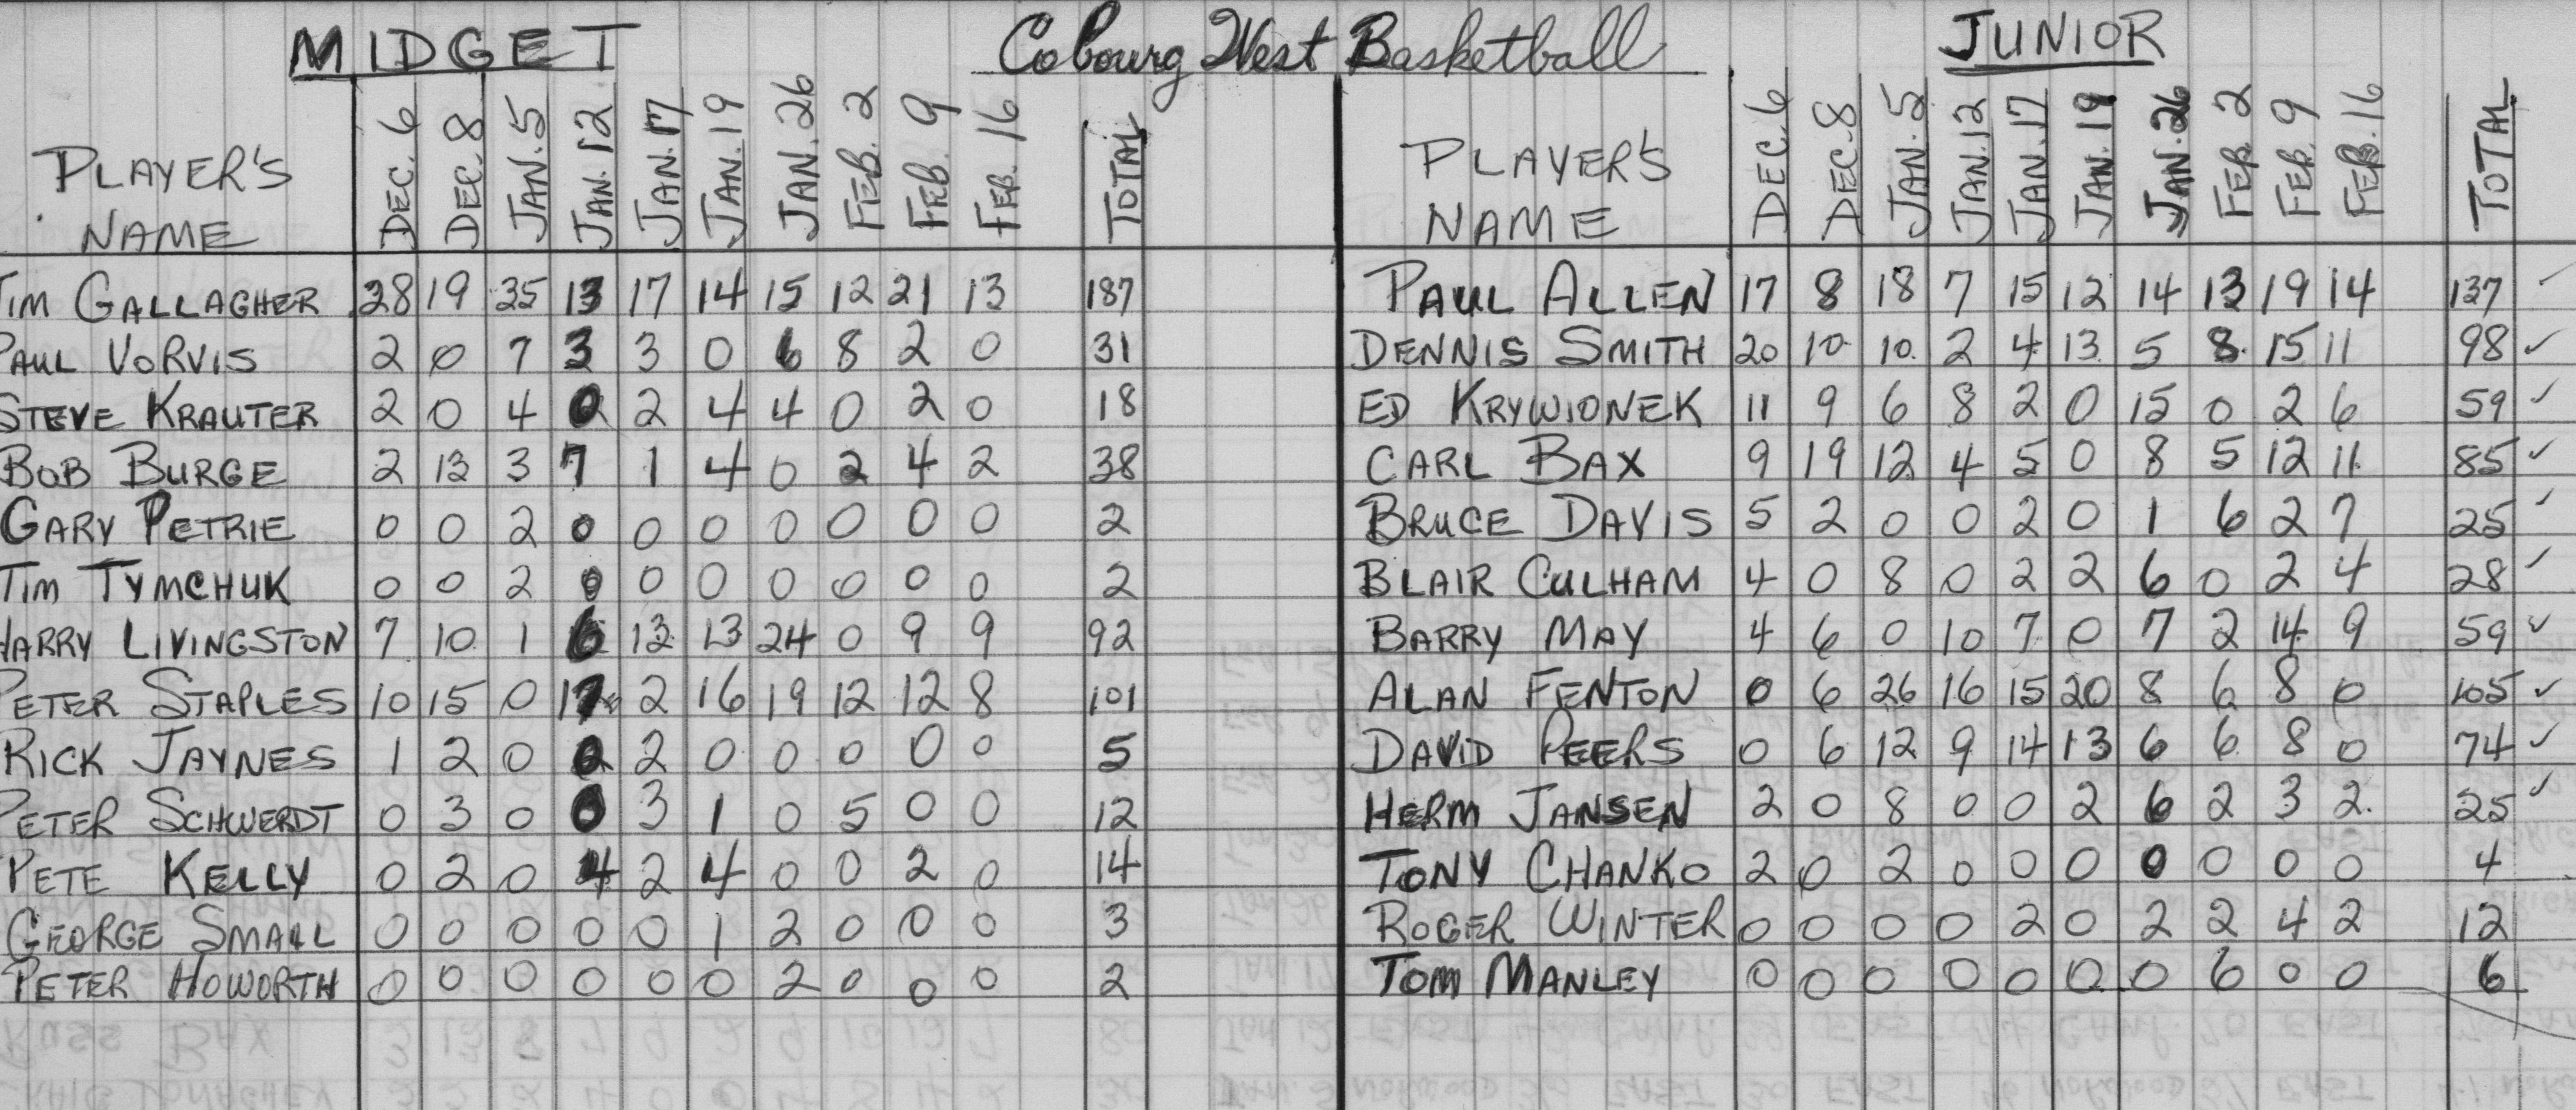 MIDGET Cobourg West Basketball JUNIOR
PLAYER'S NAME DEC. 6 DEC. 8 JAN. 5 JAN. 12 JAN. 17 JAN. 19 JAN. 26 FEB. 2 FEB. 9 FEB. 16 TOTAL
TIM GALLAGHER 28 19 35 13 17 14 15 12 21 13 187
PAUL VORVIS 2 0 7 3 3 0 6 8 2 0 31
STEVE KRAUTER 2 0 4 0 2 4 4 0 2 0 18
BOB BURGE 2 13 3 7 1 4 0 2 4 2 38
GARY PETRIE 0 0 2 0 0 0 0 0 0 0 2
TIM TYMCHUK 0 0 2 0 0 0 0 0 0 0 2
HARRY LIVINGSTON 7 10 1 6 13 13 24 0 9 9 92
PETER STAPLES 10 15 0 17 2 16 19 12 12 8 101
RICK JAYNES 1 2 0 0 2 0 0 0 0 0 5
PETER SCHWERDT 0 3 0 0 3 1 0 5 0 0 12
PETE KELLY 0 2 0 4 2 4 0 0 2 0 14
GEORGE SMALL 0 0 0 0 0 1 2 0 0 0 3
PETER HOWORTH 0 0 0 0 0 0 2 0 0 0 2
PLAYER'S NAME DEC. 6 DEC. 8 JAN. 5 JAN. 12 JAN. 17 JAN. 19 JAN. 26 FEB. 2 FEB. 9 FEB. 16 TOTAL
PAUL ALLEN 17 8 18 7 15 12 14 13 19 14 137
DENNIS SMITH 20 10 10 2 4 13 5 8 15 11 98
ED KRYWIONEK 11 9 6 8 2 0 15 0 2 6 59
CARL BAX 9 19 12 4 5 0 8 5 12 11 85
BRUCE DAVIS 5 2 0 0 2 0 1 6 2 7 25
BLAIR CULHAM 4 0 8 0 2 2 6 0 2 4 28
BARRY MAY 4 6 0 10 7 0 7 2 14 9 59
ALAN FENTON 0 6 26 16 15 20 8 6 8 0 105
DAVID PEERS 0 6 12 9 14 13 6 6 8 0 74
HERM JANSEN 2 0 8 0 0 2 6 2 3 2 25
TONY CHANKO 2 0 2 0 0 0 0 0 0 0 4
ROGER WINTER 0 0 0 0 2 0 2 2 4 2 12
TOM MANLEY 0 0 0 0 0 0 0 6 0 0 6